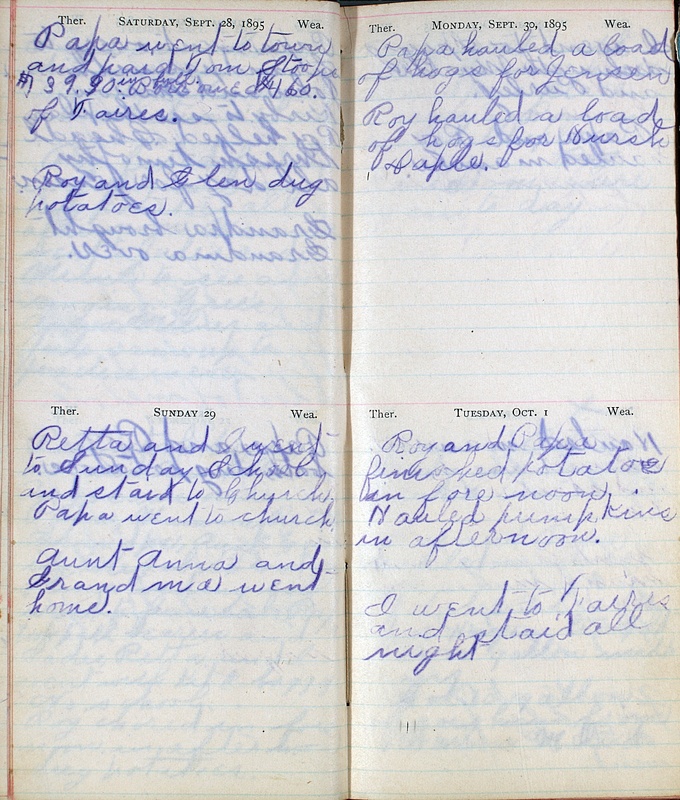 Ther. SATURDAY, SEPT. 28, 1895 Wea.
Papa went to town
and paid Tom Stoops
$139.30 in full. Borrowed $160.
of Faires.
Roy and Glen dug
potatoes.
Ther. SUNDAY 29 Wea.
Retta and I went
to Sunday School
and staid to Church.
Papa went to church
Aunt Anna and
Grandma went
home.
Ther. MONDAY, SEPT. 30, 1895 Wea.
Papa hauled a load
of hogs for Jensen
Roy hauled a load
of hogs for
Ther. TUESDAY, OCT. 1 Wea.
Roy and Papa
finished potatoes
in fore noon,
Hauled pumpkins
in afternoon.
I went to Faires
and staid all
night